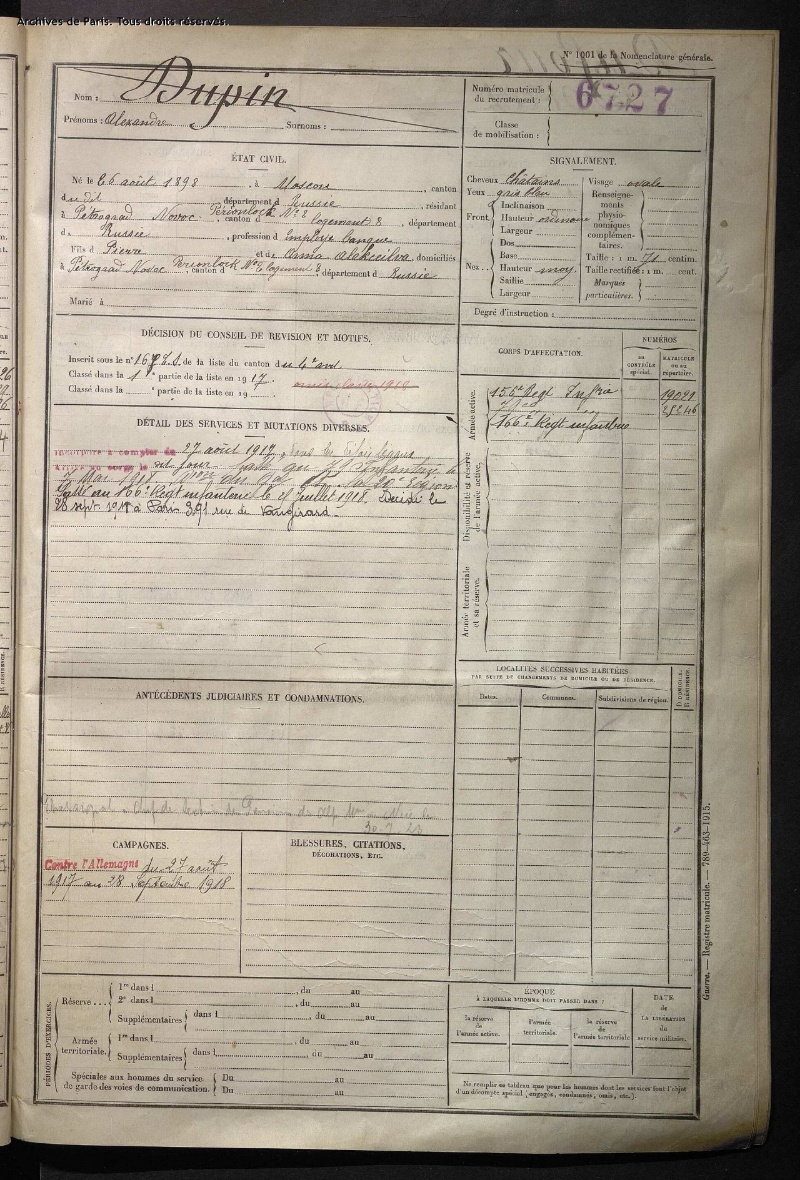 Archives de Paris. Tous droits réservés.
N° 1001 de la Nomenclature générale.
Nom : Dupin
Prénoms : Alexandre Surnoms :
Numéro matricule du recrutement : 6727
Classe de mobilisation :
ÉTAT CIVIL.
Né le 26 août 1898, à Moscou, canton
du dit, département d Russie, résidant
à Pétrograd Novoc Perionlock N° 2, canton d logement 8, département
d Russie, profession d Employé banque
Fils d Pierre et de Anna Alekeeilva, domiciliés
à Pétrograd Novoc Perionlock N° 2, canton d logement 8, département d Russie
Marié à
SIGNALEMENT.
Cheveux Chatains
Yeux gris bleu
Front. Inclinaison
Hauteur ordinaire
Largeur
Nez... Dos
Base
Hauteur moy
Saillie
Largeur
Visage ovale
Renseignements physionomiques complémentaires.
Taille : 1 m. 71 centim.
Taille rectifiée : 1 m. cent.
Marques particulières.
Degré d'instruction :
DÉCISION DU CONSEIL DE REVISION ET MOTIFS.
Inscrit sous le n° de la liste du canton du 4e arr.
Classé dans la 1e partie de la liste en 1917. omis classe 1918
Classé dans la partie de la liste en 19
DÉTAIL DES SERVICES ET MUTATIONS DIVERSES.
Incorporé à compter du 27 août 1917
Arrivé au corps le dit jour
7 Mai 1918
Passé au 166e Régt infanterie le 15 Juillet 1918. Décédé le
28 sept 1918 à Paris 391 rue de Vaugirard.
CORPS D'AFFECTATION.
NUMÉROS
DU CONTRÔLE spécial.
MATRICULE ou au répertoire.
Armée active.
156e Régt Infrie 19021
166e Régt infanterie
Disponibilité et réserve de l'armée active.
Armée territoriale et sa réserve.
LOCALITÉS SUCCESSIVES HABITÉES
PAR SUITE DE CHANGEMENTS DE DOMICILE OU DE RÉSIDENCE.
Dates.
Communes.
Subdivisions de région.
D. DOMICILE.
R. RÉSIDENCE.
ANTÉCÉDENTS JUDICIAIRES ET CONDAMNATIONS.
CAMPAGNES.
Contre l'Allemagne du 27 août
1917 au 28 Septembre 1918
BLESSURES, CITATIONS,
DÉCORATIONS, ETC.
PÉRIODES D'EXERCICES.
Réserve...
1re dans l , du au
2e dans l , du au
Supplémentaires dans l , du au
Armée territoriale.
1re dans l , du au
Supplémentaires dans l , du au
Spéciales aux hommes du service de garde des voies de communication.
Du au
Du au
ÉPOQUE
À LAQUELLE L'HOMME DOIT PASSER DANS :
la réserve de l'armée active.
l'armée territoriale.
la réserve de l'armée territoriale
DATE
de LA LIBÉRATION du service militaire.
Ne remplir ce tableau que pour les hommes dont les services font l'objet
d'un décompte spécial (engagés, condamnés, omis, etc.)
Guerre. — Registre matricule. — 789-463-1915.